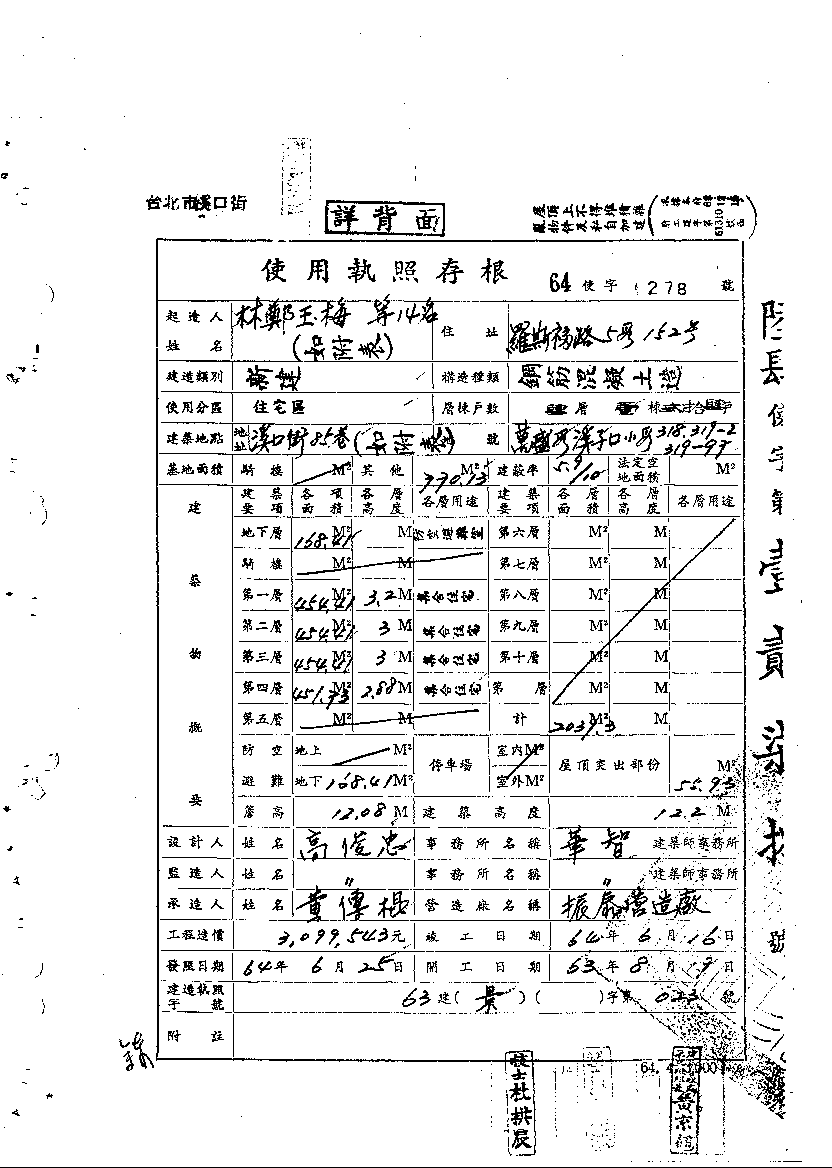 台北市溪口街
詳背面
屋頂上不得堆積雜
物件及私自加建
使用執照存根 64 使字 1278 號
起造人姓名 林鄭玉梅 等14名 (如附表) 住址 羅斯福路5段152號
建造類別 新建 構造種類 鋼筋混凝土造
使用分區 住宅區 層棟戶數 層 棟
建築地點 地址 溪口街85巷 (如附表) 號 萬盛段溪子口小段318.319-2
319-97
基地面積 騎樓 M² 其他 770.13 M² 建蔽率 5.9/10 法定空地面積 M²
建築要項 各項面積 各層高度 各層用途 建築要項 各層面積 各層高度 各層用途
建築物概要
地下層 168.41 M² M 第六層 M² M
騎樓 M² M 第七層 M² M
第一層 454.41 M² 3.2 M 集合住宅 第八層 M² M
第二層 454.41 M² 3 M 集合住宅 第九層 M² M
第三層 454.41 M² 3 M 集合住宅 第十層 M² M
第四層 451.73 M² 2.88 M 集合住宅 第 層 M² M
第五層 M² M 計 2039.3 M² M
防空避難 地上 M² 停車場 室內M² 屋頂突出部份 M²
地下 168.41 M² 室外M² 55.93
簷高 12.08 M 建築高度 12.2 M
設計人 姓名 高俊忠 事務所名稱 華智 建築師事務所
監造人 姓名 〃 事務所名稱 〃 建築師事務所
承造人 姓名 黃傳棍 營造廠名稱 振鼎營造廠
工程造價 3,099,543元 竣工日期 64年6月16日
發照日期 64年6月25日 開工日期 63年8月19日
建造執照字號 63建(景)( )字第 023 號
附註
技士杜拱辰